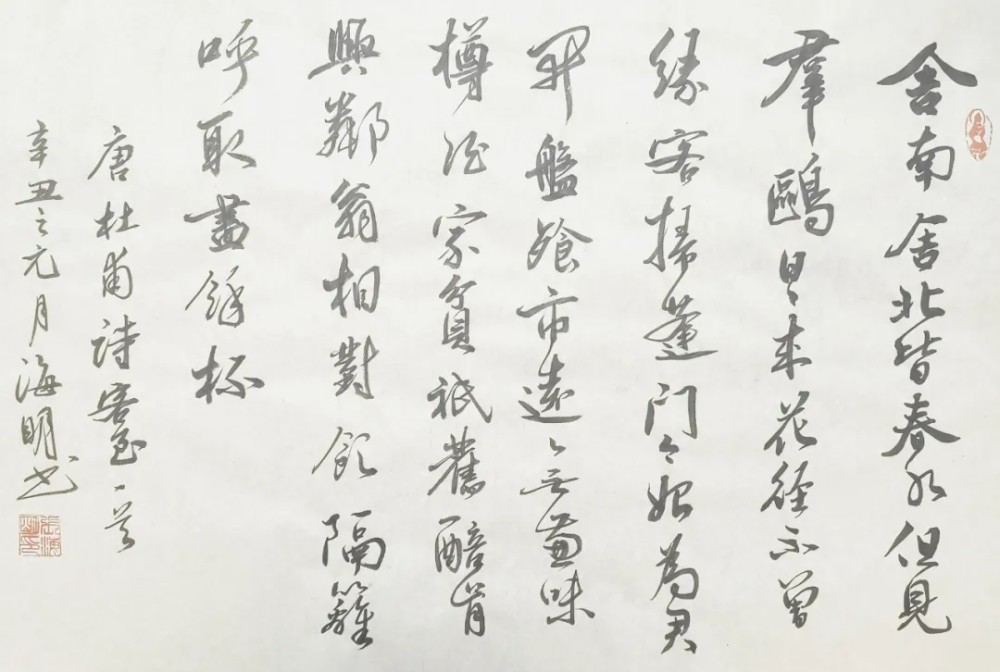 舍南舍北皆春水但見
羣鷗日〻来花徑不曾
緣客掃蓬門今始為君
開盤飧市遠無兼味
樽酒家貧祇舊醅肯
與鄰翁相對飲隔籬
呼取盡餘杯
唐杜甫詩客至一首
辛丑之元月海明书